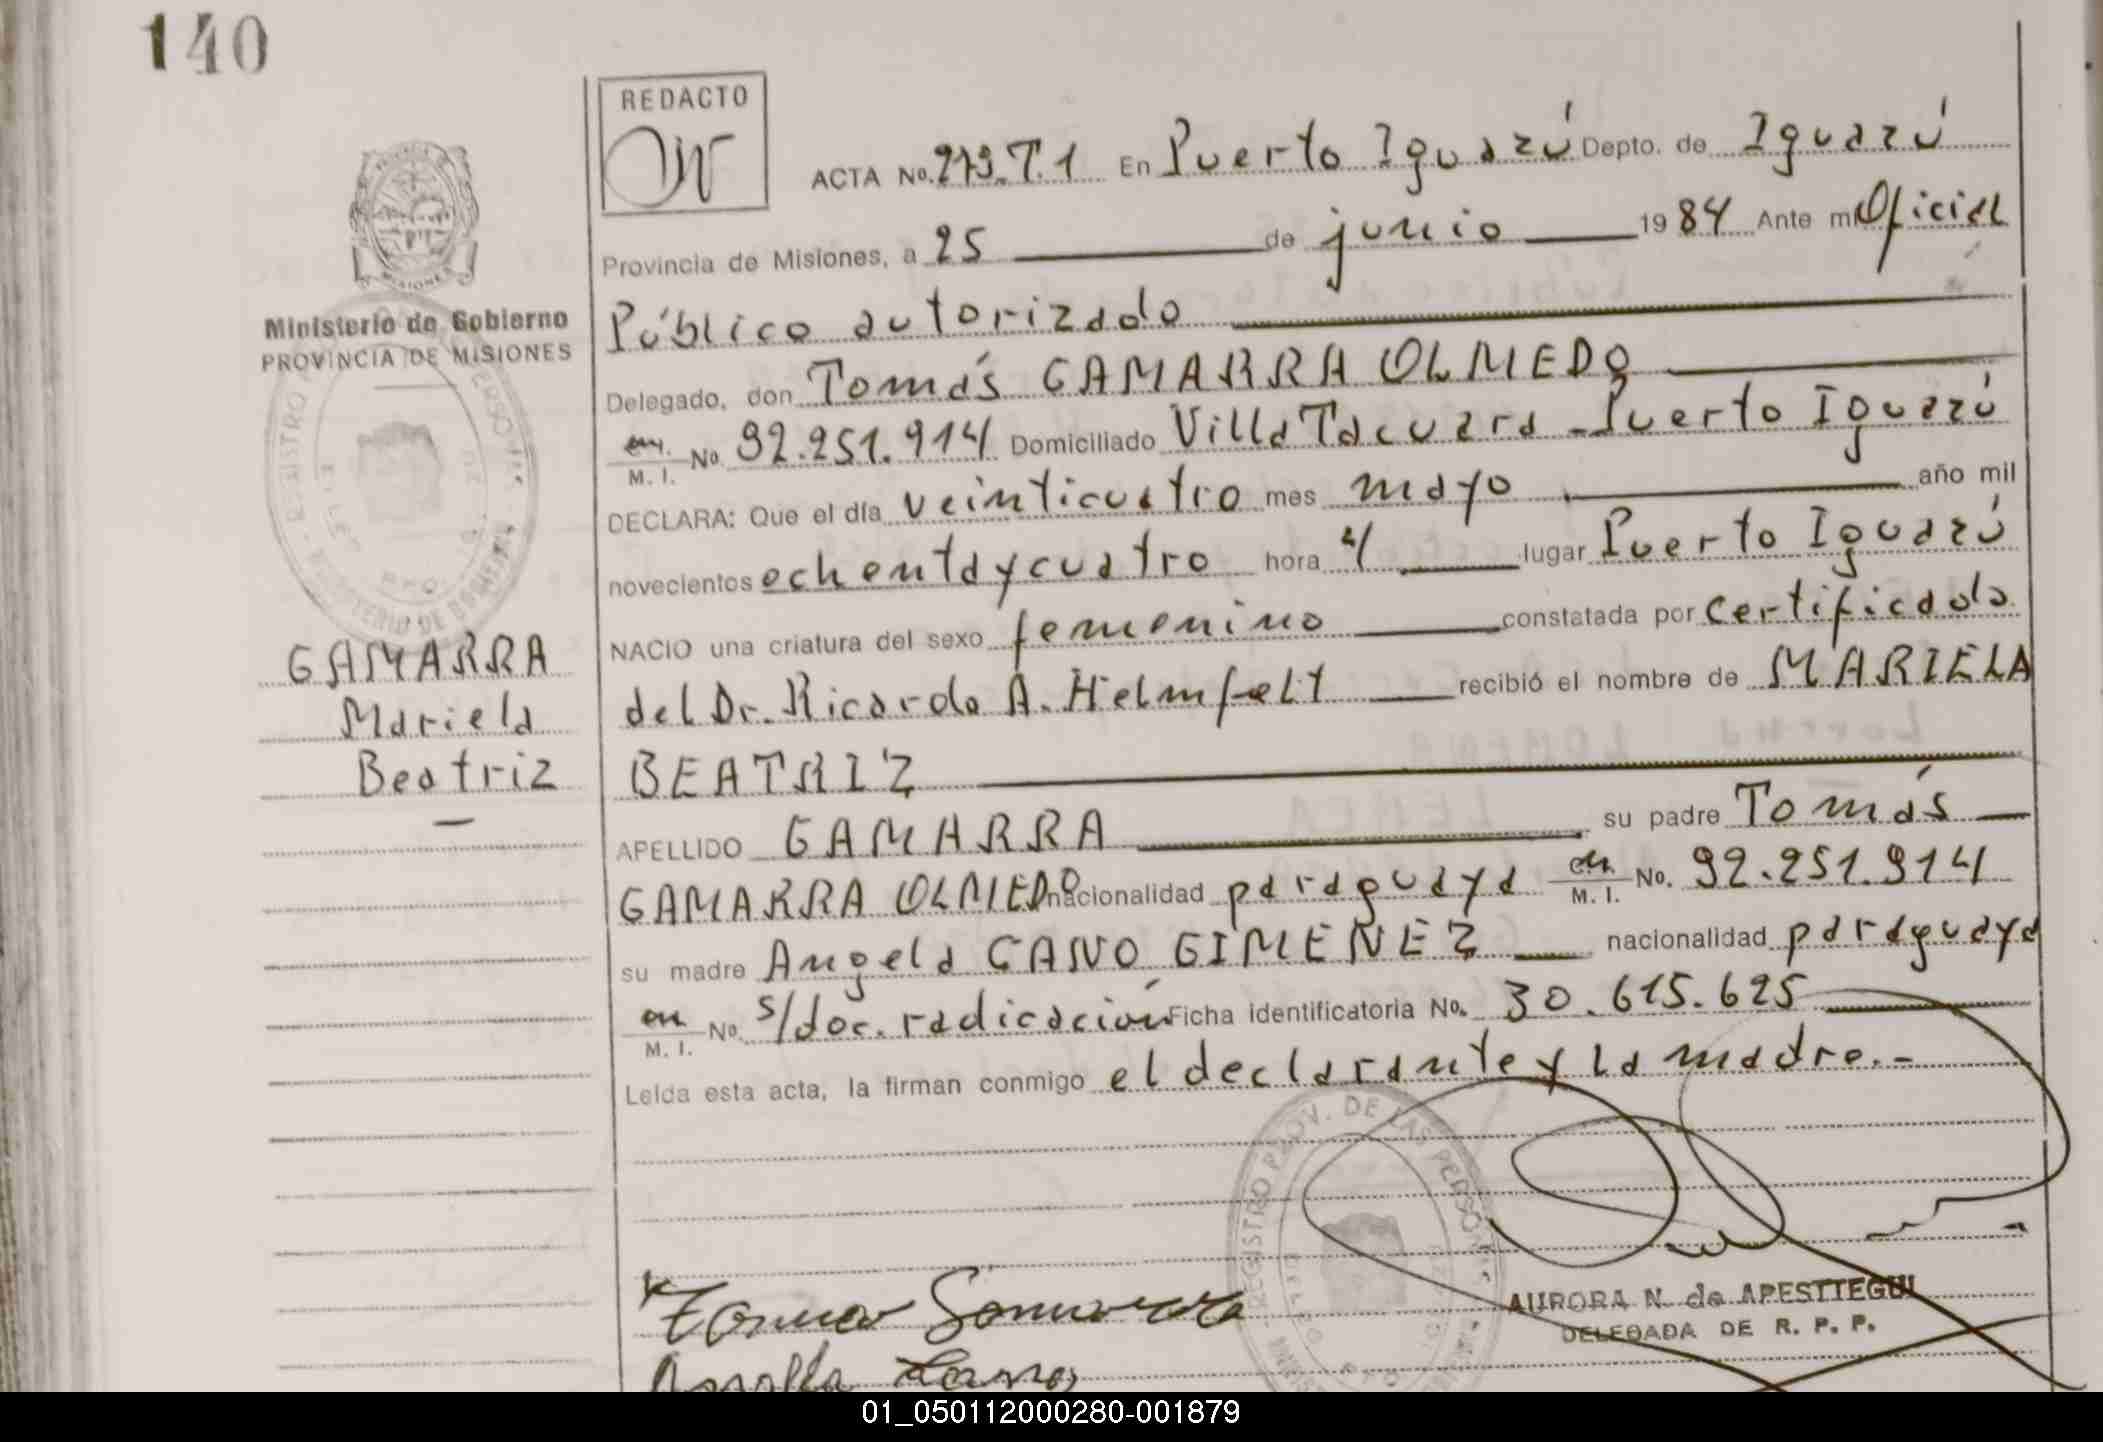 140
REDACTO
ACTA No. 273. T. 1 En Puerto Iguazú Depto. de Iguazú
Provincia de Misiones, a 25 de junio 1984 Ante mi Oficial
Público autorizado
Ministerio de Gobierno
PROVINCIA DE MISIONES
Delegado, don Tomás GAMARRA OLMEDO
M. I. No. 92.251.914 Domiciliado Villa Tacuara - Puerto Iguazú
DECLARA: Que el día veinticuatro mes mayo año mil
novecientos ochentaycuatro hora 4 lugar Puerto Iguazú
NACIO una criatura del sexo femenino constatada por certificado
GAMARRA
Mariela
Beatriz
del Dr. Ricardo A. Helmfelt recibió el nombre de MARIELA
BEATRIZ
APELLIDO GAMARRA su padre Tomás
GAMARRA OLMEDO nacionalidad paraguaya M. I. No. 92.251.914
su madre Angela CANO GIMENEZ nacionalidad paraguaya
M. I. No. s/doc. radicación Ficha identificatoria No. 30.615.625
Leída esta acta, la firman conmigo el declarante y la madre.-
REGISTRO PROV. DE LAS PERSONAS
AURORA N. de APESTTEGUI
DELEGADA DE R. P. P.
01_050112000280-001879